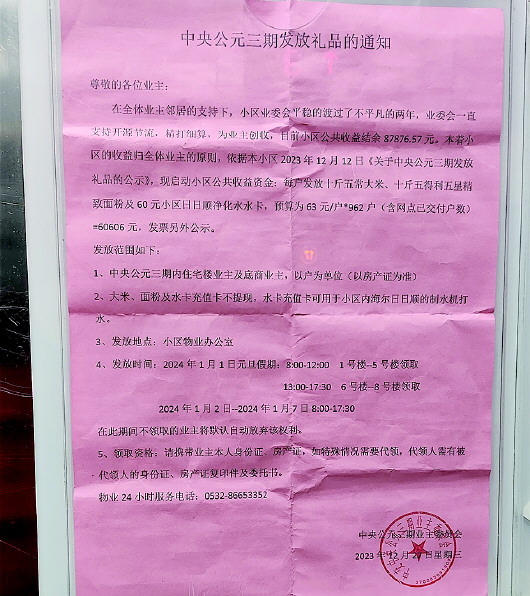 中央公元三期发放礼品的通知
尊敬的各位业主:
在全体业主邻居的支持下,小区业委会平稳的渡过了不平凡的两年,业委会一直
支持开源节流,精打细算,为业主创收,目前小区公共收益结余 87876.57 元。本着小
区的收益归全体业主的原则,依据本小区 2023 年 12 月 12 日《关于中央公元三期发放
礼品的公示》,现启动小区公共收益资金:每户发放十斤五常大米、十斤五得利五星精
致面粉及 60 元小区日日顺净化水水卡,预算为 63 元/户*962 户(含网点已交付户数)
=60606 元,发票另外公示。
发放范围如下:
1、中央公元三期内住宅楼业主及底商业主,以户为单位(以房产证为准)
2、大米、面粉及水卡充值卡不提现,水卡充值卡可用于小区内海尔日日顺的制水机打
水。
3、发放地点:小区物业办公室
4、发放时间:2024 年 1 月 1 日元旦假期:8:00-12:00 1 号楼--5 号楼领取
13:00-17:30 6 号楼--8 号楼领取
2024 年 1 月 2 日--2024 年 1 月 7 日 8:00-17:30
在此期间不领取的业主将默认自动放弃该权利。
5、领取资格:请携带业主本人身份证、房产证,如特殊情况需要代领,代领人需有被
代领人的身份证、房产证复印件及委托书。
物业 24 小时服务电话:0532-86653352
中央公元三期业主委员会
2023 年 12 月 日星期三